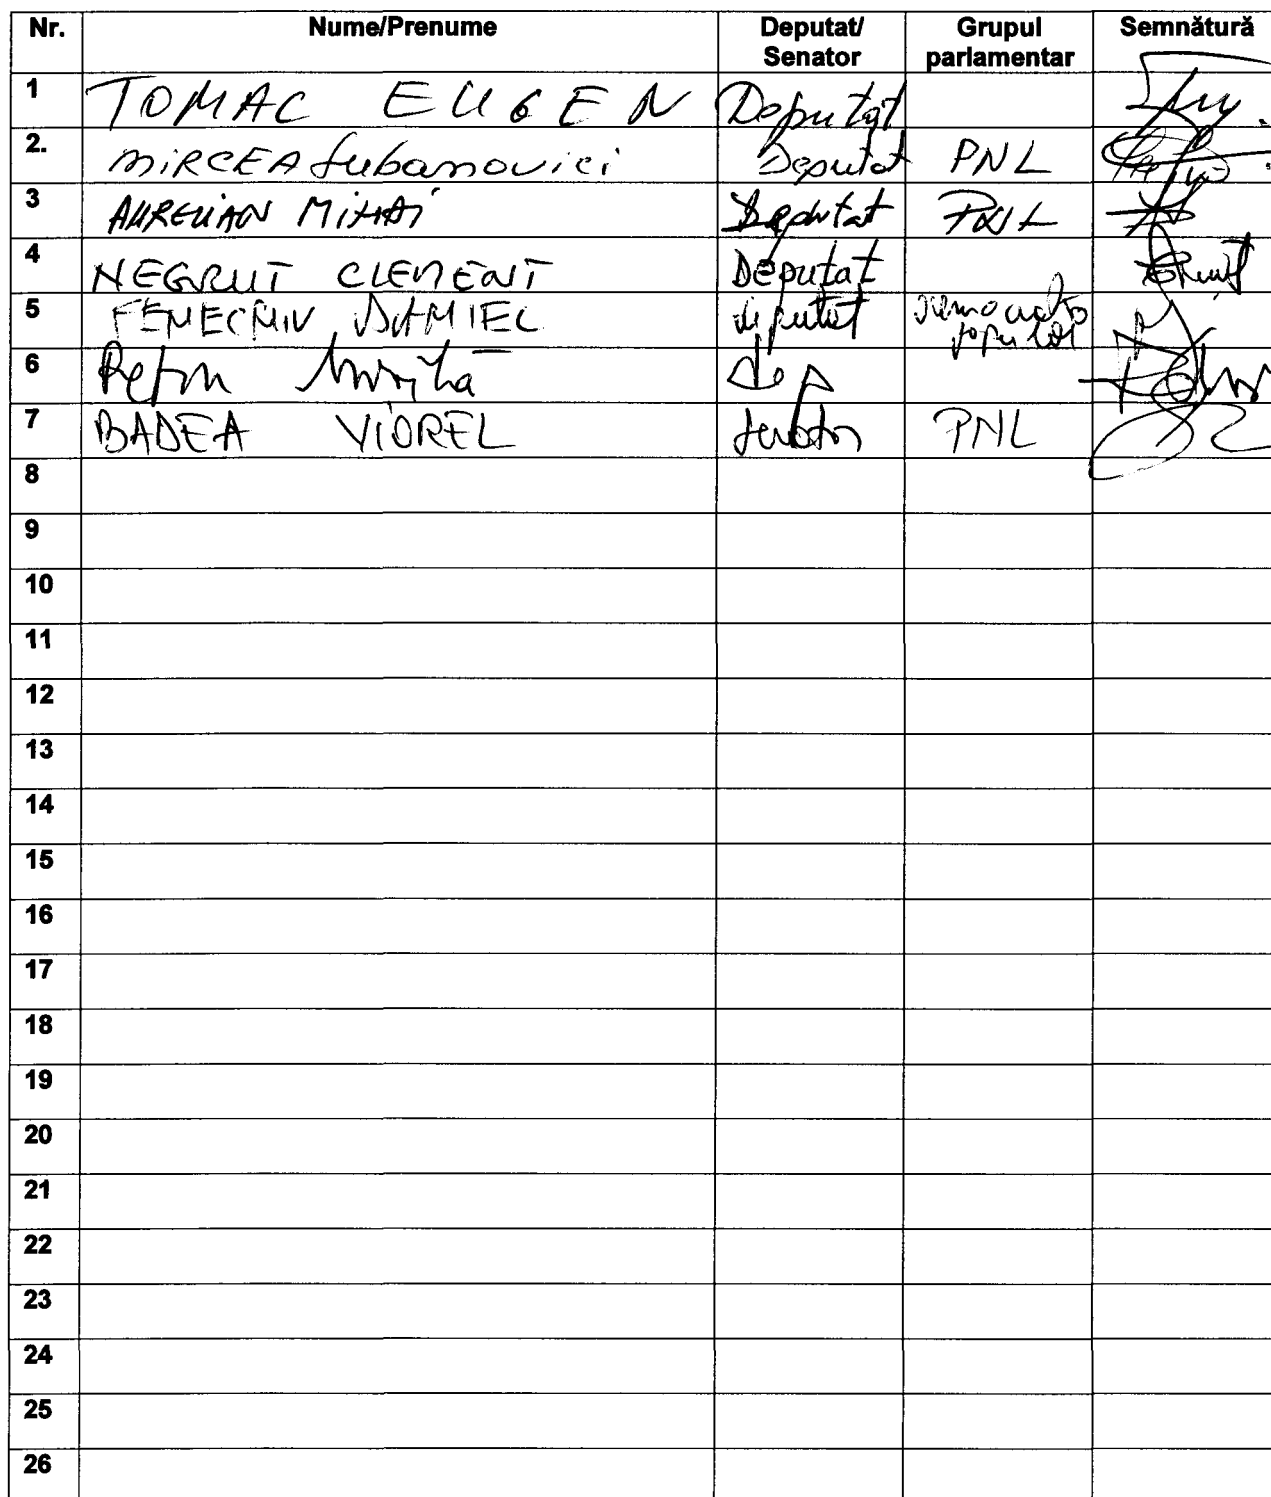 Nr. Nume/Prenume Deputat/ Senator Grupul parlamentar Semnătură
1 TOMAC EUGEN Deputat
2. MIRCEA Lubanovici Deputat PNL
3 AURELIAN MIHAI Deputat PNL
4 NEGRUT CLEMENT Deputat
5 FENECHIU DANIEL deputat democrat popular
6 dep
7 BADEA VIOREL senator PNL
8
9
10
11
12
13
14
15
16
17
18
19
20
21
22
23
24
25
26